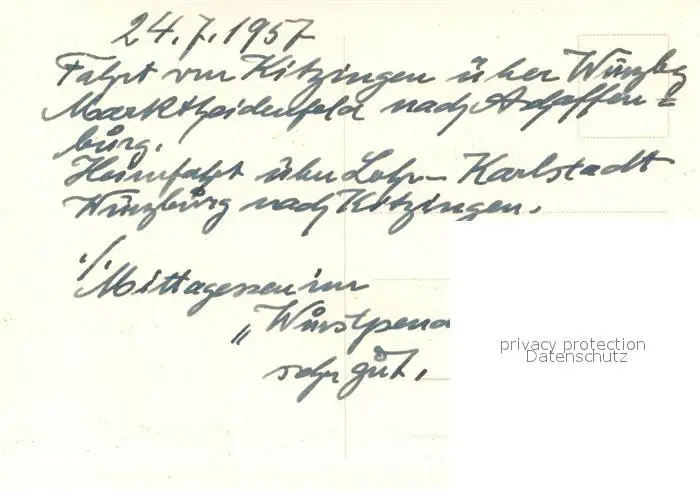 24.7.1957
Fahrt von Kitzingen über Würzbg
Marktheidenfeld nach Aschaffen=
burg.
Heimfahrt über Lohr - Karlstadt
Würzburg nach Kitzingen.
./.
Mittagessen im
„Wurst
sehr gut.
privacy protection
Datenschutz